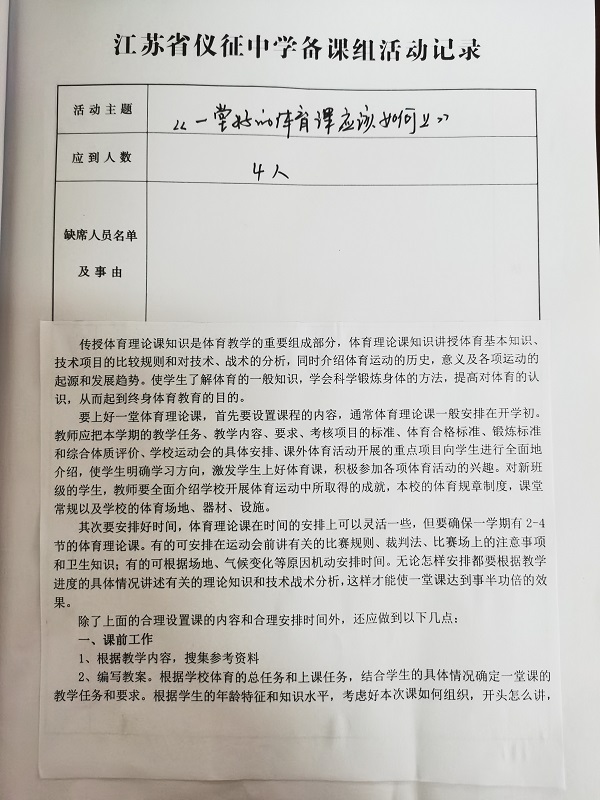 江苏省仪征中学备课组活动记录
活动主题
《一堂好的体育课应该如何上》
应到人数
4人
缺席人员名单
及事由
传授体育理论课知识是体育教学的重要组成部分，体育理论课知识讲授体育基本知识、
技术项目的比较规则和对技术、战术的分析，同时介绍体育运动的历史，意义及各项运动的
起源和发展趋势。使学生了解体育的一般知识，学会科学锻炼身体的方法，提高对体育的认
识，从而起到终身体育教育的目的。
要上好一堂体育理论课，首先要设置课程的内容，通常体育理论课一般安排在开学初。
教师应把本学期的教学任务、教学内容、要求、考核项目的标准、体育合格标准、锻炼标准
和综合体质评价、学校运动会的具体安排、课外体育活动开展的重点项目向学生进行全面地
介绍，使学生明确学习方向，激发学生上好体育课，积极参加各项体育活动的兴趣。对新班
级的学生，教师要全面介绍学校开展体育运动中所取得的成就，本校的体育规章制度，课堂
常规以及学校的体育场地、器材、设施。
其次要安排好时间，体育理论课在时间的安排上可以灵活一些，但要确保一学期有2-4
节的体育理论课。有的可安排在运动会前讲有关的比赛规则、裁判法、比赛场上的注意事项
和卫生知识；有的可根据场地、气候变化等原因机动安排时间。无论怎样安排都要根据教学
进度的具体情况讲述有关的理论知识和技术战术分析，这样才能使一堂课达到事半功倍的效
果。
除了上面的合理设置课的内容和合理安排时间外，还应做到以下几点：
一、课前工作
1、根据教学内容，搜集参考资料
2、编写教案。根据学校体育的总任务和上课任务，结合学生的具体情况确定一堂课的
教学任务和要求。根据学生的年龄特征和知识水平，考虑好本次课如何组织，开头怎么讲，